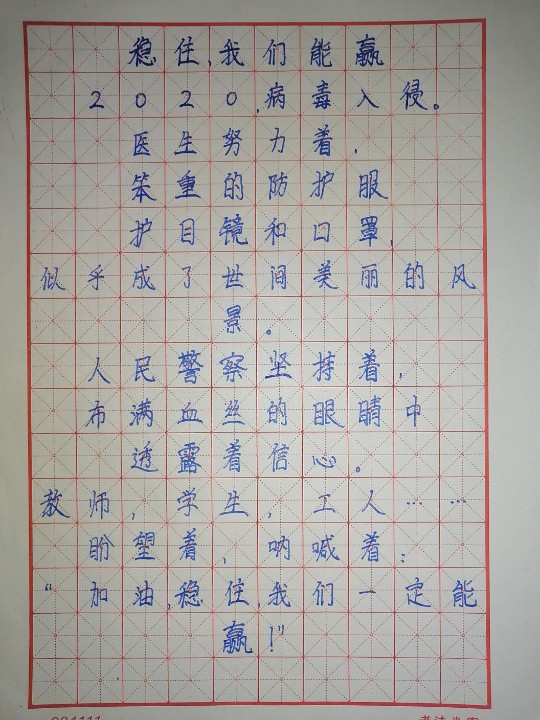 稳住,我们能赢
2020,病毒入侵。
医生努力着,
笨重的防护服
护目镜和口罩,
似乎成了世间美丽的风
景。
人民警察坚持着,
布满血丝的眼睛中
透露着信心。
教师,学生,工人……
盼望着,呐喊着:
“加油,稳住,我们一定能
赢!”